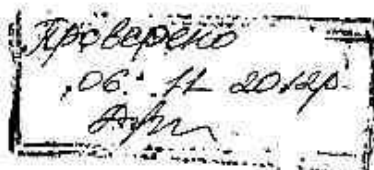 Проверено
06. 11 2012р.